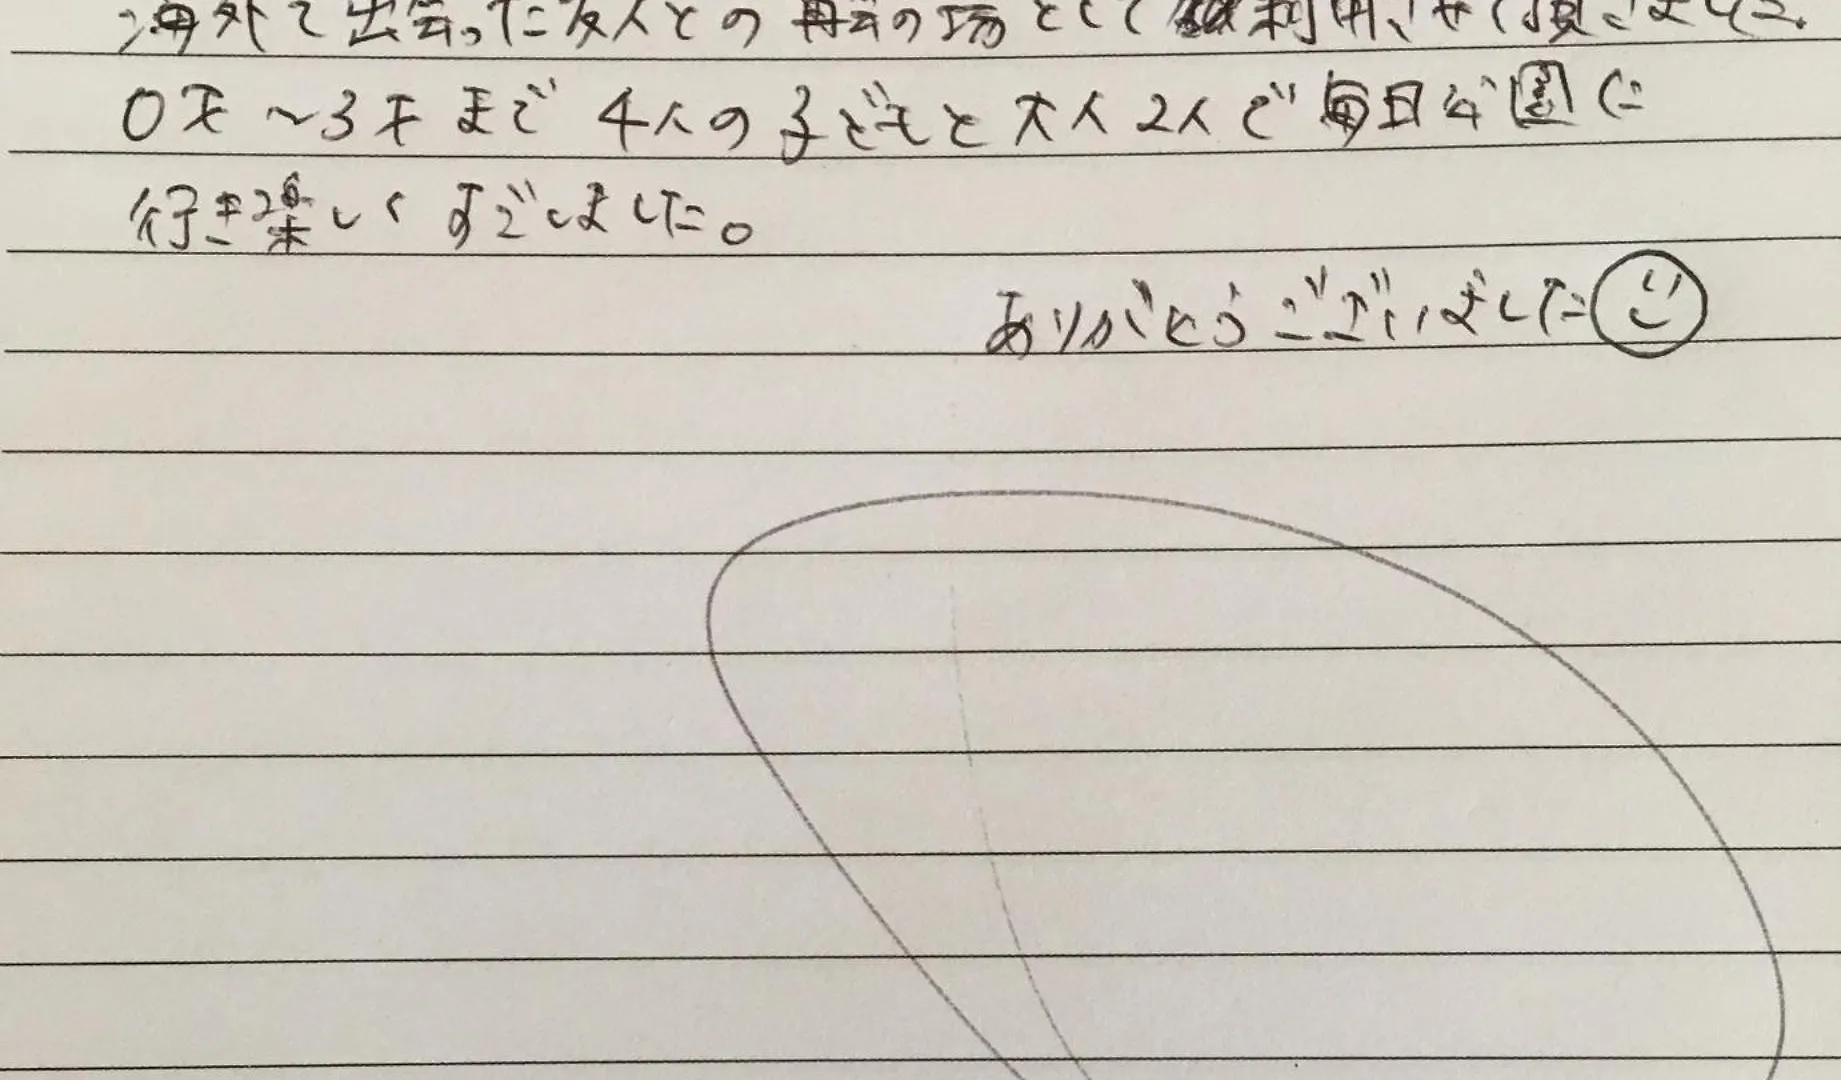 海外で出会った友人との再会の場として利用させて頂きました。
0才〜3才まで4人の子どもと大人2人で毎日公園に
行き楽しくすごしました。
ありがとうございました